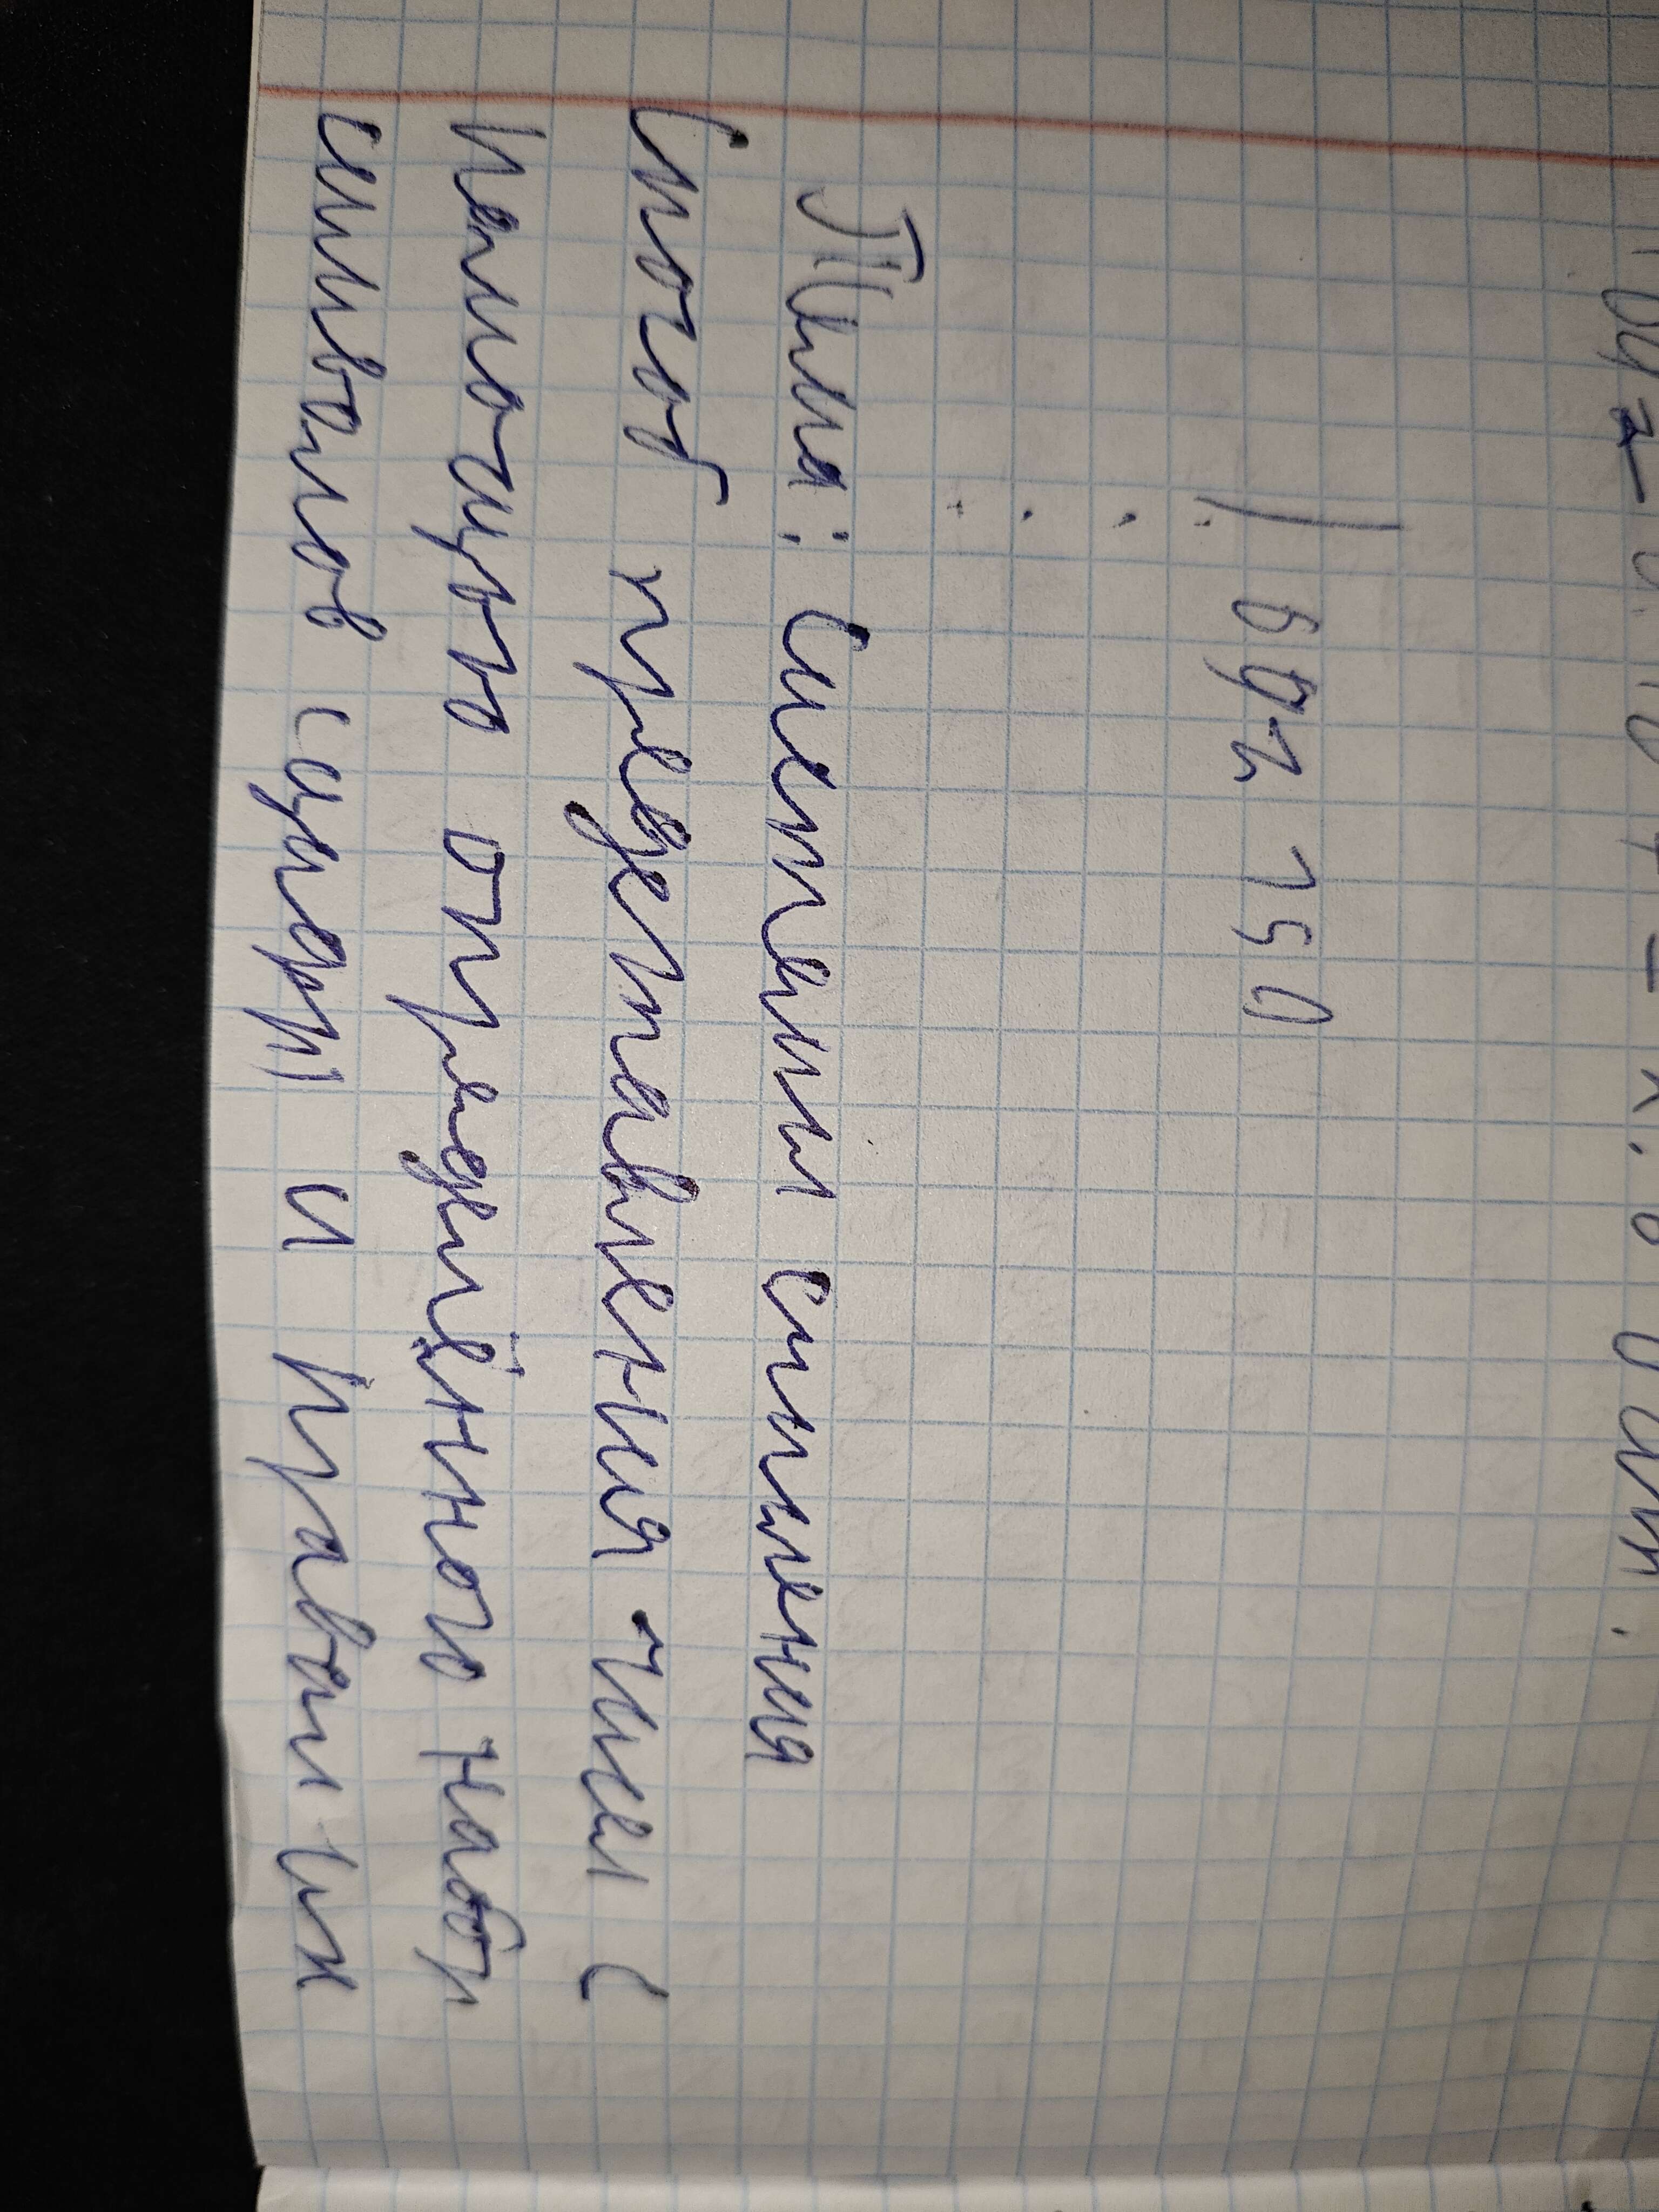 692 150
Тема: Системы счисления
Способ представления чисел с
помощью определённого набор
символов (цифр) и правал их